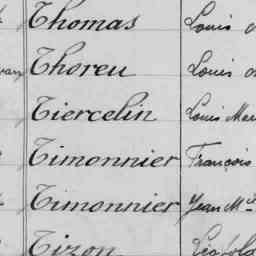 Thomas Louis
Thoreu Louis
Tiercelin Louis
Timonnier François
Timonnier Jean M
Tizon Léopold